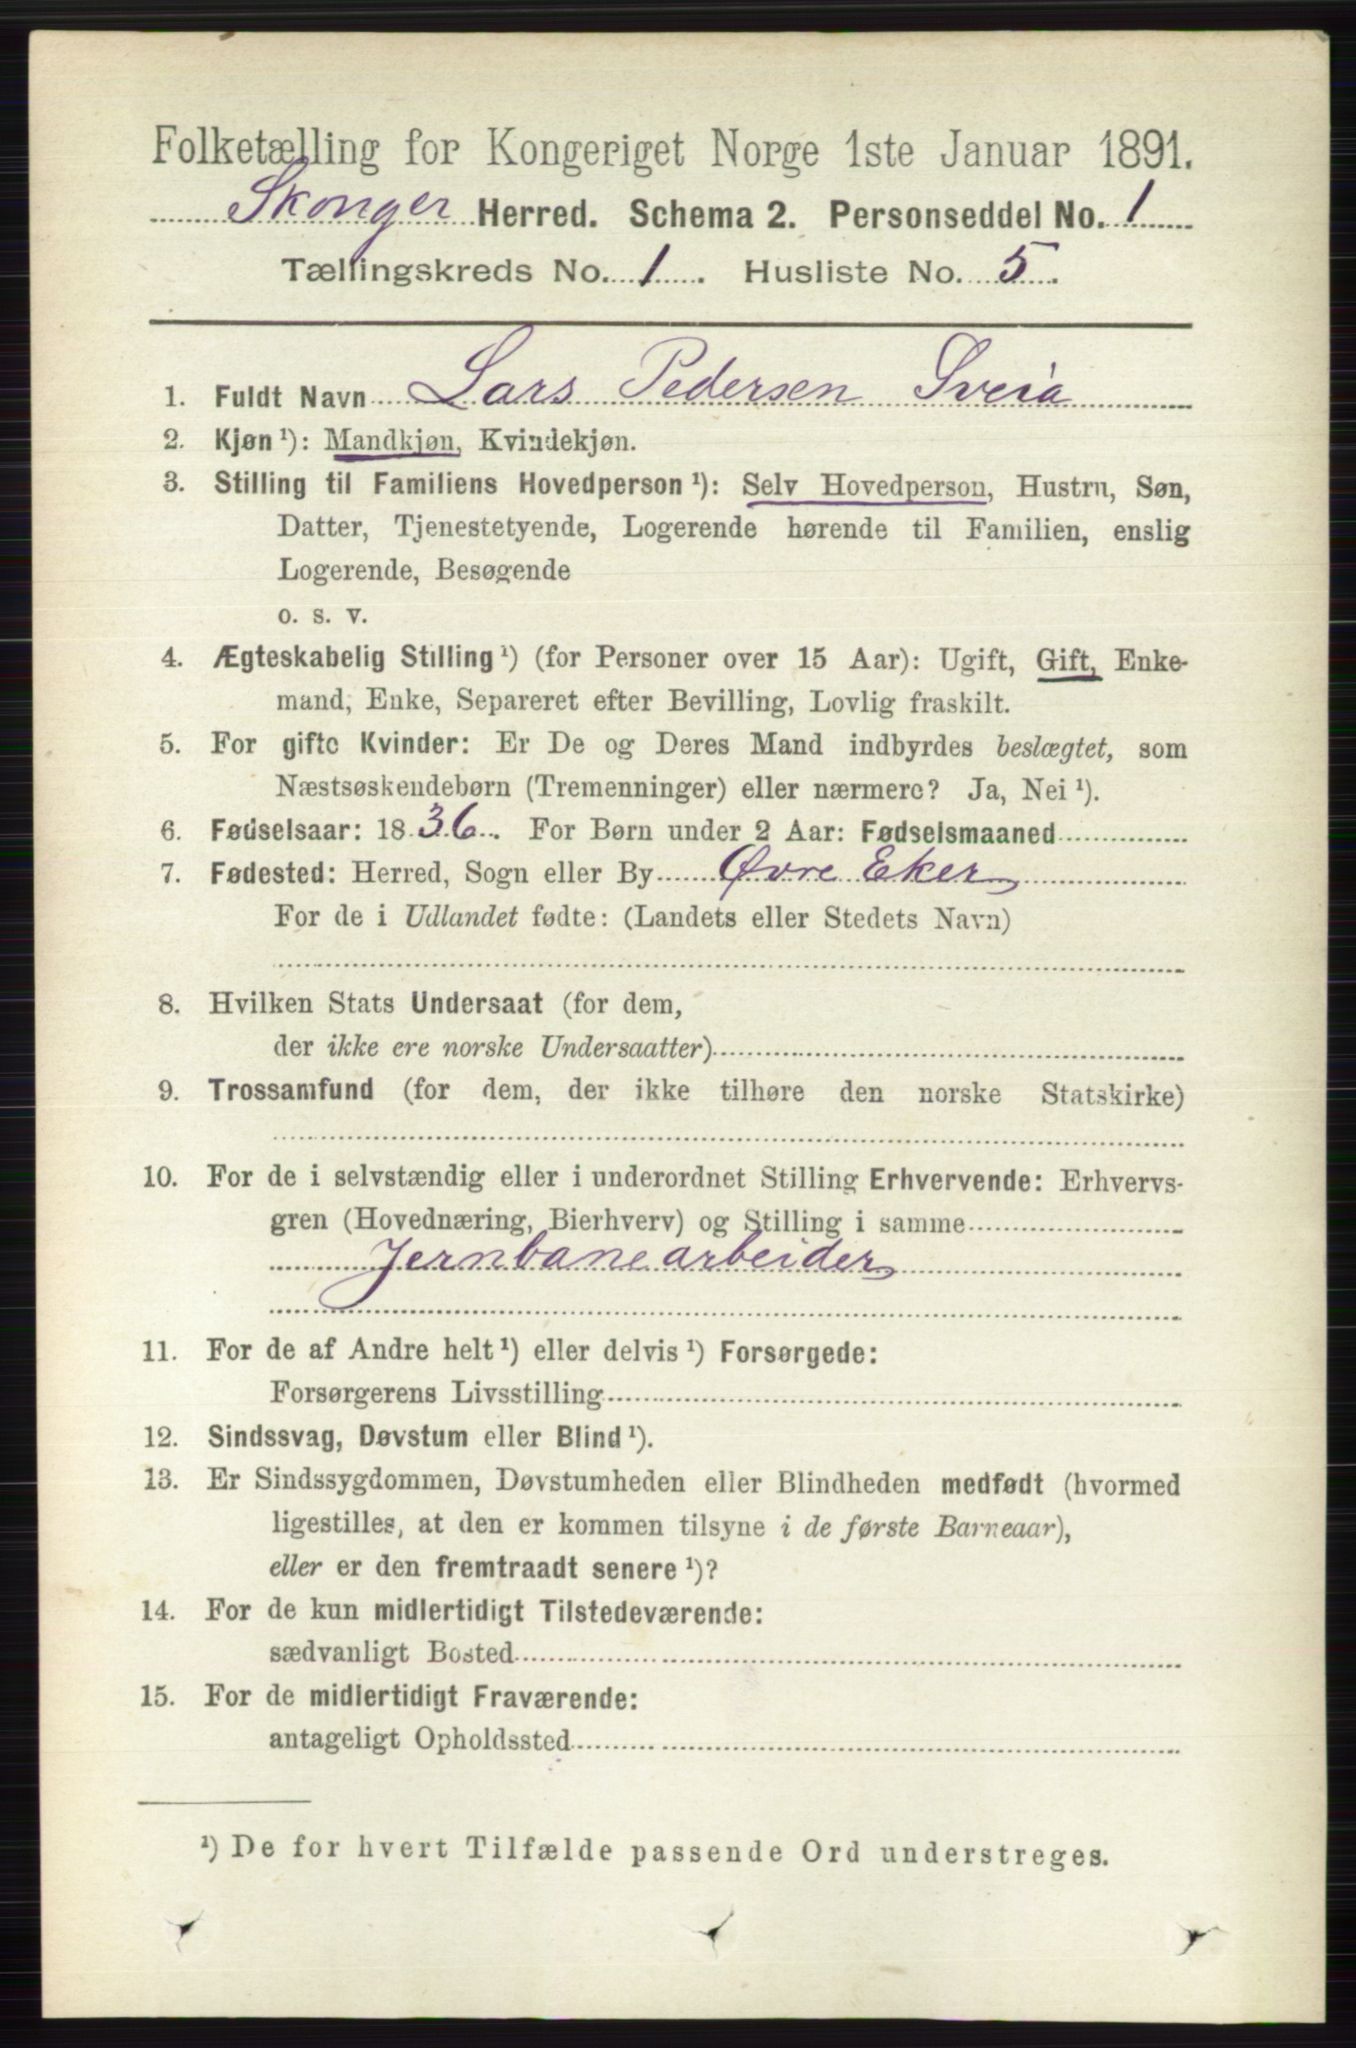 Folketælling for Kongeriget Norge 1ste Januar 1891.
Skonger Herred. Schema 2. Personseddel No. 1
Tællingskreds No. 1. Husliste No. 5.
1. Fuldt Navn Lars Pedersen Sveia
2. Kjøn ¹): Mandkjøn, Kvindekjøn.
3. Stilling til Familiens Hovedperson ¹): Selv Hovedperson, Hustru, Søn,
Datter, Tjenestetyende, Logerende hørende til Familien, enslig
Logerende, Besøgende
o. s. v.
4. Ægteskabelig Stilling ¹) (for Personer over 15 Aar): Ugift, Gift, Enke-
mand, Enke, Separeret efter Bevilling, Lovlig fraskilt.
5. For gifte Kvinder: Er De og Deres Mand indbyrdes beslægtet, som
Næstsøskendebørn (Tremenninger) eller nærmere? Ja, Nei ¹).
6. Fødselsaar: 1836. For Børn under 2 Aar: Fødselsmaaned
7. Fødested: Herred, Sogn eller By Øvre Eker
For de i Udlandet fødte: (Landets eller Stedets Navn)
8. Hvilken Stats Undersaat (for dem,
der ikke ere norske Undersaatter)
9. Trossamfund (for dem, der ikke tilhøre den norske Statskirke)
10. For de i selvstændig eller i underordnet Stilling Erhvervende: Erhvervs-
gren (Hovednæring, Bierhverv) og Stilling i samme
Jernbanearbeider
11. For de af Andre helt ¹) eller delvis ¹) Forsørgede:
Forsørgerens Livsstilling
12. Sindssvag, Døvstum eller Blind ¹).
13. Er Sindssygdommen, Døvstumheden eller Blindheden medfødt (hvormed
ligestilles, at den er kommen tilsyne i de første Barneaar),
eller er den fremtraadt senere ¹)?
14. For de kun midlertidigt Tilstedeværende:
sædvanligt Bosted
15. For de midlertidigt Fraværende:
antageligt Opholdssted
¹) De for hvert Tilfælde passende Ord understreges.